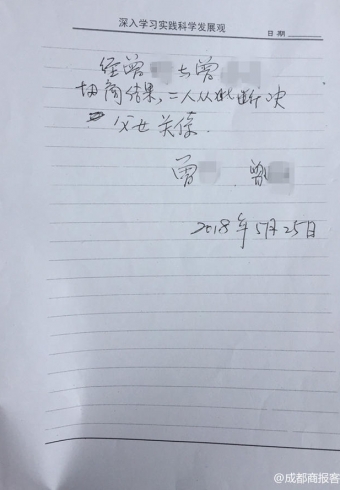 深入学习实践科学发展观
日期
经曾 与曾
协商结果,二人从此断决
父女关系.
曾 曾
2018年5月25日
@成都商报客